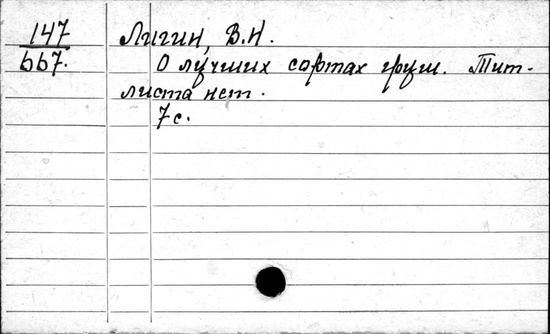 147 Лигин, В.Н.
667. О лучших сортах груш. Тит.
листа нет.
7 с.